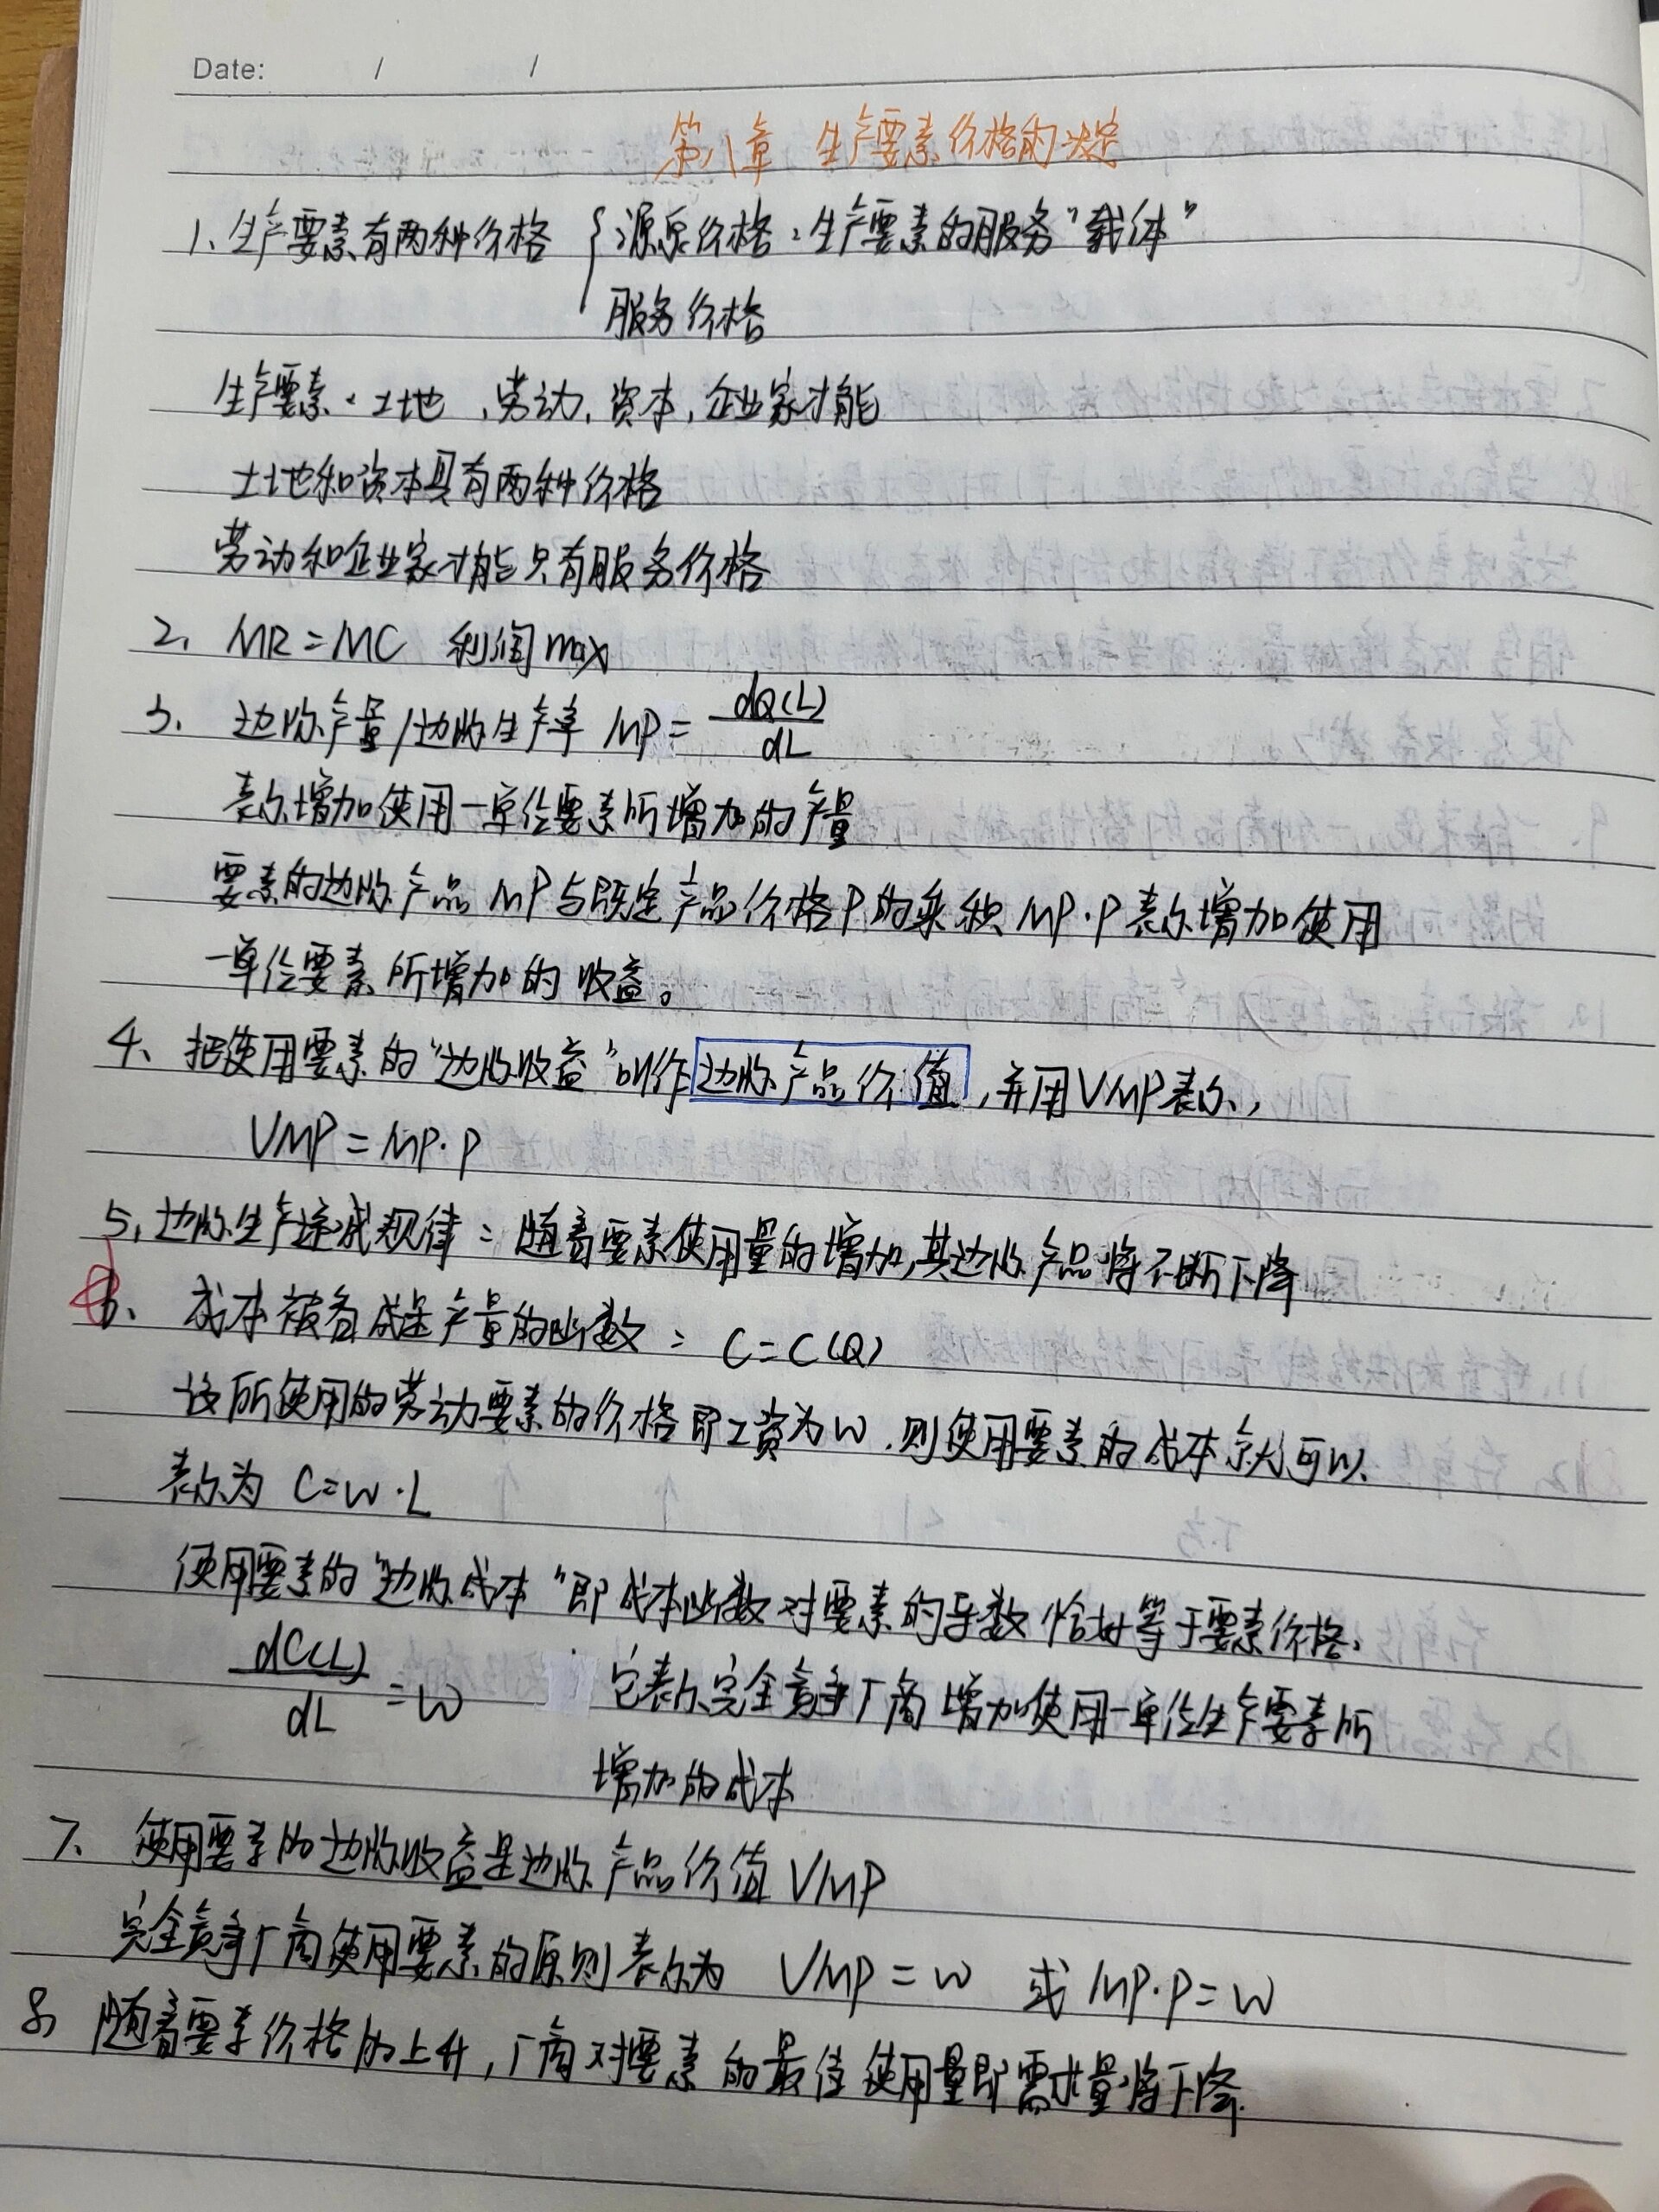 Date: / /
第八章 生产要素价格的决定
1、生产要素有两种价格 { 源泉价格：生产要素的服务"载体"
服务价格
生产要素：土地，劳动，资本，企业家才能
土地和资本具有两种价格
劳动和企业家才能只有服务价格
2、MR=MC 利润max
3、边际产量/边际生产率 MP= dQ(L)/dL
表示增加使用一单位要素所增加的产量
要素的边际产品MP与既定产品价格P的乘积MP·P表示增加使用
一单位要素所增加的收益。
4、把使用要素的"边际收益"叫作边际产品价值，并用VMP表示，
VMP=MP·P
5、边际生产递减规律：随着要素使用量的增加，其边际产品将不断下降
6、成本被看成是产量的函数：C=C(Q)
设所使用的劳动要素的价格即工资为W，则使用要素的成本就可以
表示为 C=W·L
使用要素的"边际成本"即成本函数对要素的导数恰好等于要素价格，
dC(L)/dL =W 它表示完全竞争厂商增加使用一单位生产要素所
增加的成本
7、使用要素的边际收益是边际产品价值VMP
完全竞争厂商使用要素的原则表示为 VMP=W 或MP·P=W
8、随着要素价格的上升，厂商对要素的最佳使用量即需求量将下降.